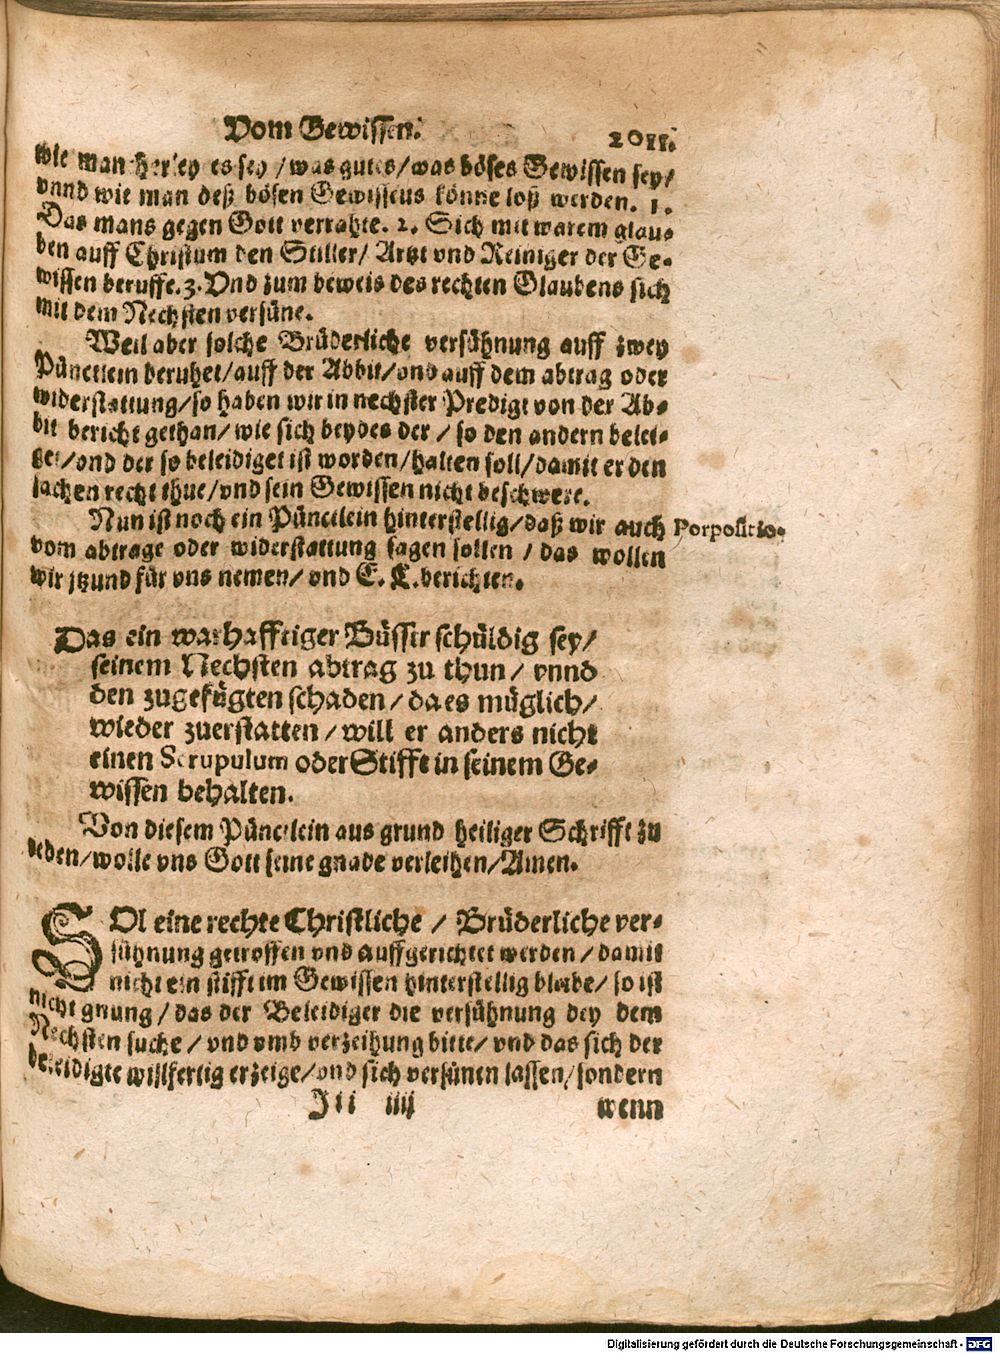 Vom Gewissen. 2011.
wie man herley es sey / was gutes / was böses Gewissen sey /
vnnd wie man deß bösen Gewissens könne loß werden. 1.
Das mans gegen Gott verrahte. 2. Sich mit warem glau-
ben auff Christum den Stiller / Artzt vnd Reiniger der Ge-
wissen beruffe. 3. Vnd zum beweis des rechten Glaubens sich
mit dem Nechsten versüne.
Weil aber solche Brüderliche versühnung auff zwey
Pünctlein beruhet / auff der Abbit / vnd auff dem abtrag oder
widerstattung / so haben wir in nechster Predigt von der Ab-
bit bericht gethan / wie sich beydes der / so den andern belei-
get / vnd der so beleidiget ist worden / halten soll / damit er den
sachen recht thue / vnd sein Gewissen nicht beschwere.
Nun ist noch ein Pünctlein hinterstellig / daß wir auch
Porpositio.
vom abtrage oder widerstattung sagen sollen / das wollen
wir jtzund für vns nemen / vnd E. L. berichten.
Das ein warhafftiger Büsser schüldig sey /
seinem Nechsten abtrag zu thun / vnnd
den zugefügten schaden / da es müglich /
wieder zuerstatten / will er anders nicht
einen Scrupulum oder Stifft in seinem Ge-
wissen behalten.
Von diesem Pünctlein aus grund heiliger Schrifft zu
reden / wolle vns Gott seine gnade verleihen / Amen.
SOl eine rechte Christliche / Brüderliche ver-
sühnung getroffen vnd auffgerichtet werden / damit
nicht ein stifft im Gewissen hinterstellig bleibe / so ist
nicht gnung / das der Beleidiger die versühnung bey dem
Nechsten suche / vnd vmb verzeihung bitte / vnd das sich der
beleidigte willfertig erzeige / vnd sich versünen lassen / sondern
Iii iiij wenn
Digitalisierung gefördert durch die Deutsche Forschungsgemeinschaft - DFG